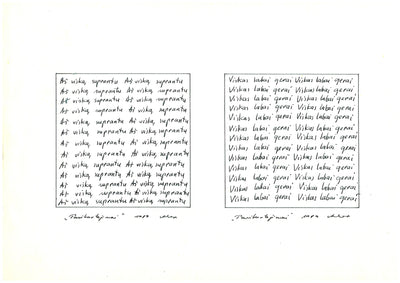 Aš viską suprantu Aš viską suprantu
Aš viską suprantu Aš viską suprantu
Aš viską suprantu Aš viską suprantu
Aš viską suprantu Aš viską suprantu
Aš viską suprantu Aš viską suprantu
Aš viską suprantu Aš viską suprantu
Aš viską suprantu Aš viską suprantu
Aš viską suprantu Aš viską suprantu
Aš viską suprantu Aš viską suprantu
Aš viską suprantu Aš viską suprantu
Aš viską suprantu Aš viską suprantu
Aš viską suprantu Aš viską suprantu
Viskas labai gerai Viskas labai gerai
Viskas labai gerai Viskas labai gerai
Viskas labai gerai Viskas labai gerai
Viskas labai gerai Viskas labai gerai
Viskas labai gerai Viskas labai gerai
Viskas labai gerai Viskas labai gerai
Viskas labai gerai Viskas labai gerai
Viskas labai gerai Viskas labai gerai
Viskas labai gerai Viskas labai gerai
Viskas labai gerai Viskas labai gerai
Viskas labai gerai Viskas labai gerai
Viskas labai gerai Viskas labai gerai